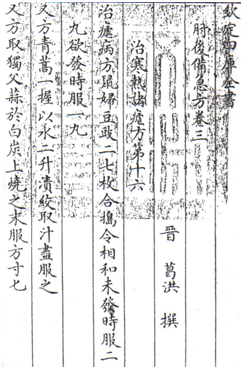 欽定四庫全書
肘後備急方卷三
晉 葛洪 撰
治寒熱諸瘧方第十六
治瘧病方鼠婦豆豉二七枚合搗令相和未發時服二
九欲發時服一九
又方青蒿一握以水二升漬絞取汁盡服之
又方取獨父蒜於白炭上燒之末服方寸七